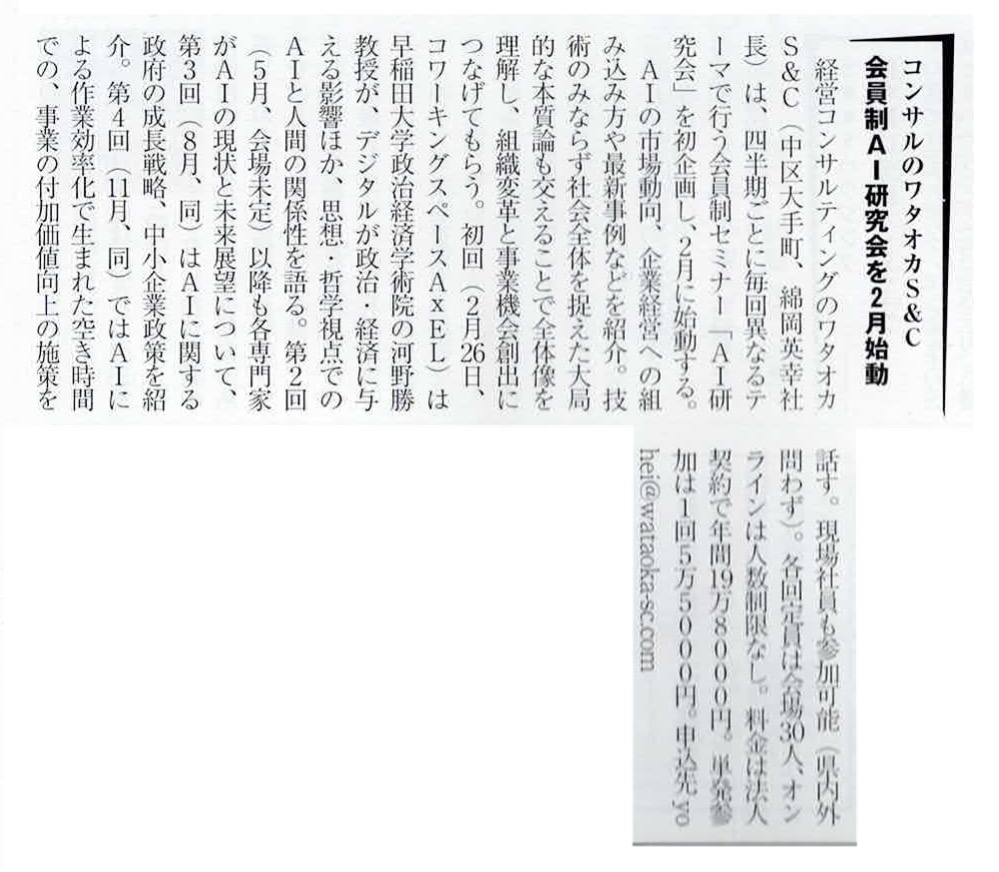 コンサルのワタオカS&C
会員制AI研究会を2月始動
経営コンサルティングのワタオカ
S&C（中区大手町、綿岡英幸社
長）は、四半期ごとに毎回異なるテ
ーマで行う会員制セミナー「AI研
究会」を初企画し、2月に始動する。
AIの市場動向、企業経営への組
み込み方や最新事例などを紹介。技
術のみならず社会全体を捉えた大局
的な本質論も交えることで全体像を
理解し、組織変革と事業機会創出に
つなげてもらう。初回（2月26日、
コワーキングスペースAxEL）は
早稲田大学政治経済学術院の河野勝
教授が、デジタルが政治・経済に与
える影響ほか、思想・哲学視点での
AIと人間の関係性を語る。第2回
（5月、会場未定）以降も各専門家
がAIの現状と未来展望について、
第3回（8月、同）はAIに関する
政府の成長戦略、中小企業政策を紹
介。第4回（11月、同）ではAIに
よる作業効率化で生まれた空き時間
での、事業の付加価値向上の施策を
話す。現場社員も参加可能（県内外
問わず）。各回定員は会場30人、オン
ラインは人数制限なし。料金は法人
契約で年間19万8000円。単発参
加は1回5万5000円。申込先 yo
hei@wataoka-sc.com